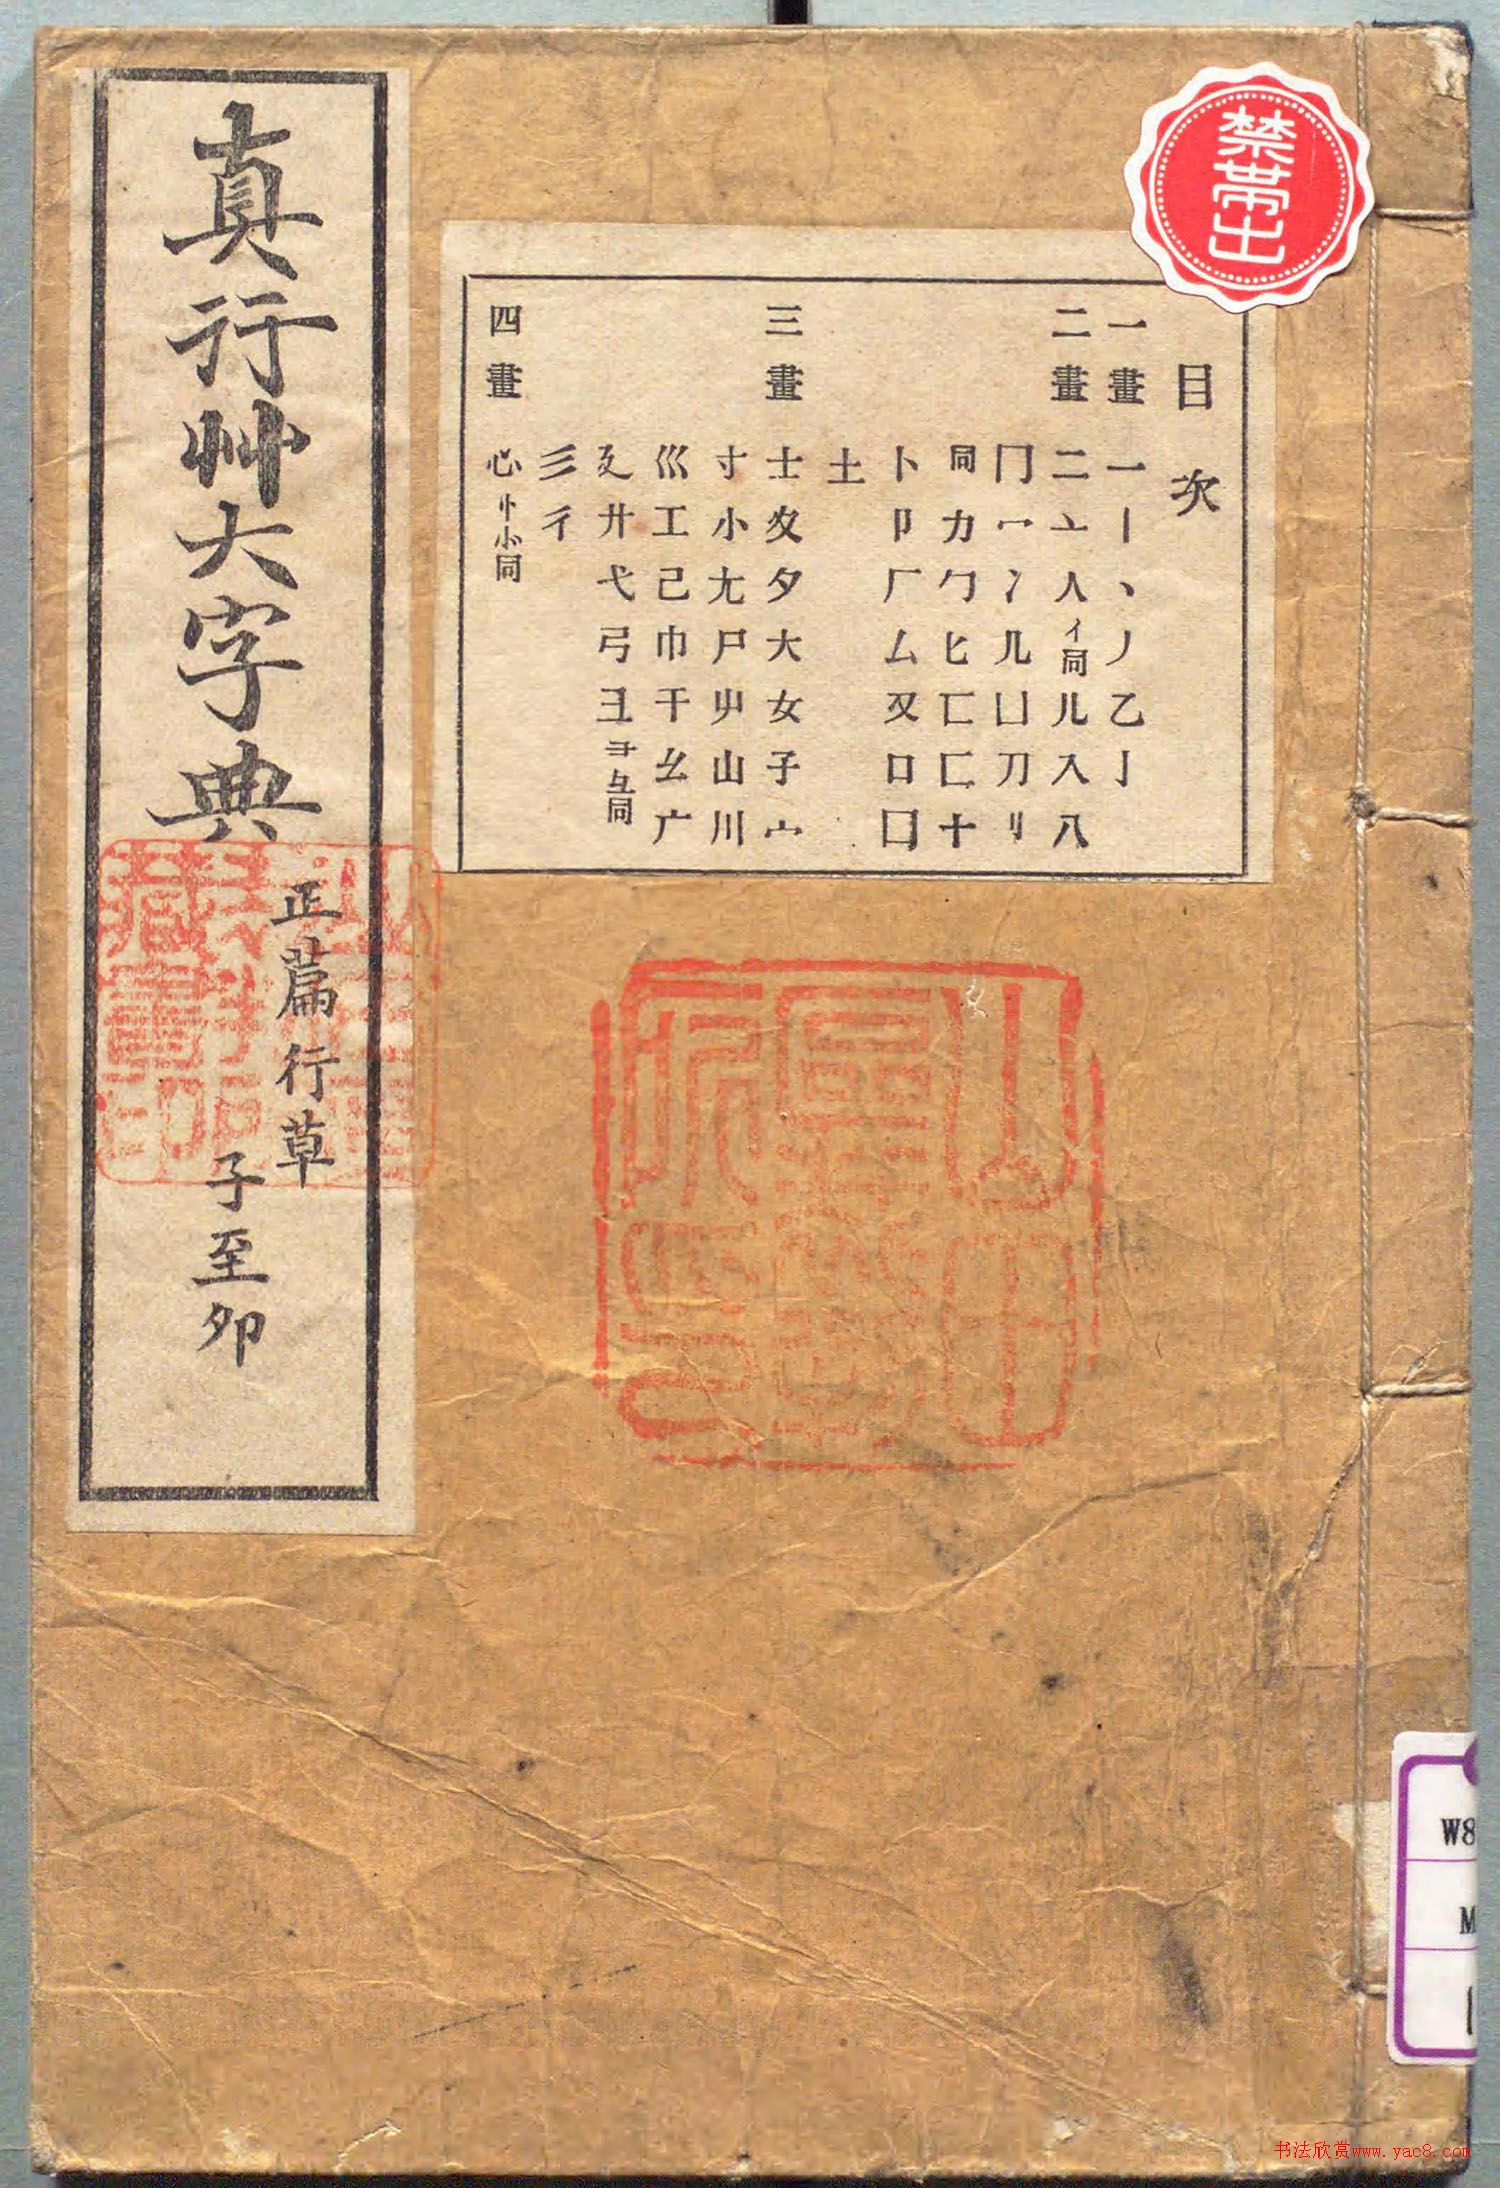 真行艸大字典
正篇行草
子至夘
禁帯出
目次
一畫 一丨丶丿乙亅
二畫 二亠人イ同儿入八
冂冖冫几凵刀刂
同力勹匕匚匸十
卜卩厂厶又口囗
土
三畫 士夊夕大女子宀
寸小尢尸屮山川
巛工己巾干幺广
廴廾弋弓彐⺕彑同
彡彳
四畫 心忄㣺同
W8
M
1
书法欣赏www.yac8.com